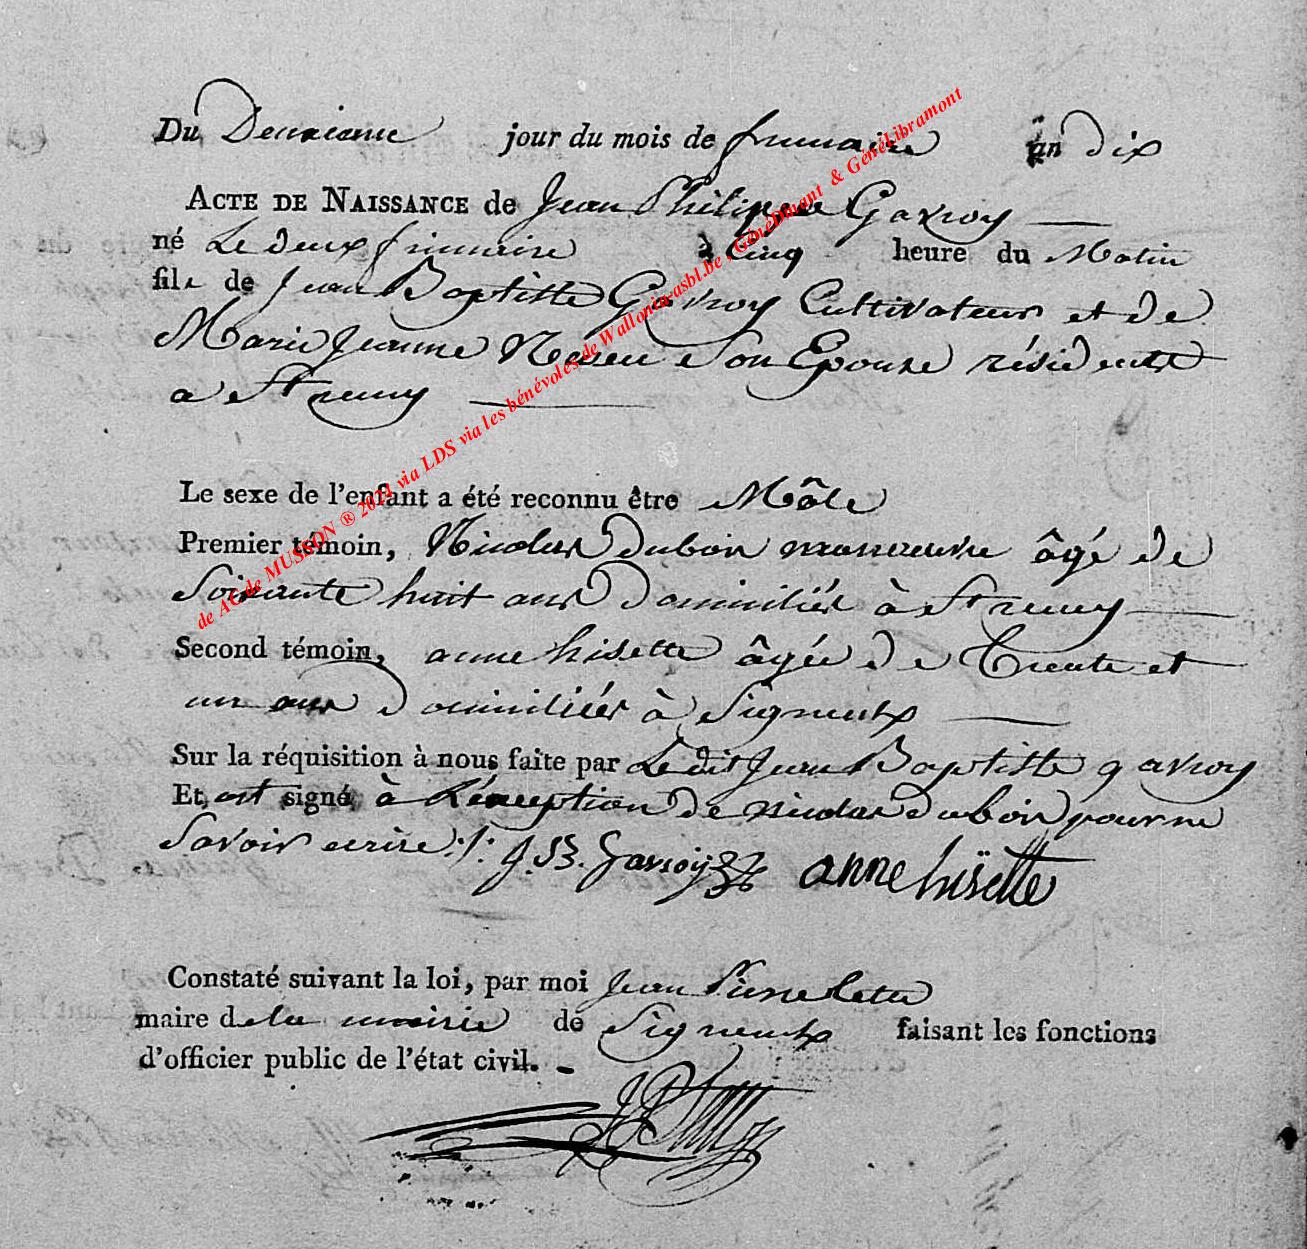 Du Deuxieme jour du mois de frimaire an dix
ACTE DE NAISSANCE de Jean Philippe Gavroy
né Le deux frimaire à Cinq heure du Matin
fils de Jean Baptiste Gavroy Cultivateur et de
Marie Jeanne son Epouse résidents
a St remy
Le sexe de l'enfant a été reconnu être Mâle
Premier témoin, Nicolas Dubois manoeuvre âgé de
Soixante huit ans Domiciliés à St remy
Second témoin, anne hisette âgée de Trente et
un ans Domiciliées à Signeulx
Sur la réquisition à nous faite par Ledit Jean Baptiste gavroy
Et ont signé à L'éxception de nicolas dubois pour ne
Savoir ecrire ./.
J. B. Gavroy anne hisette
Constaté suivant la loi, par moi Jean Pierre
maire de la mairie de Signeulx faisant les fonctions
d'officier public de l'état civil.
de AC de MUSSON ® 2021 via LDS via les bénévoles de Wallonia-asbl.be , GénéDinant & GénéLibramont